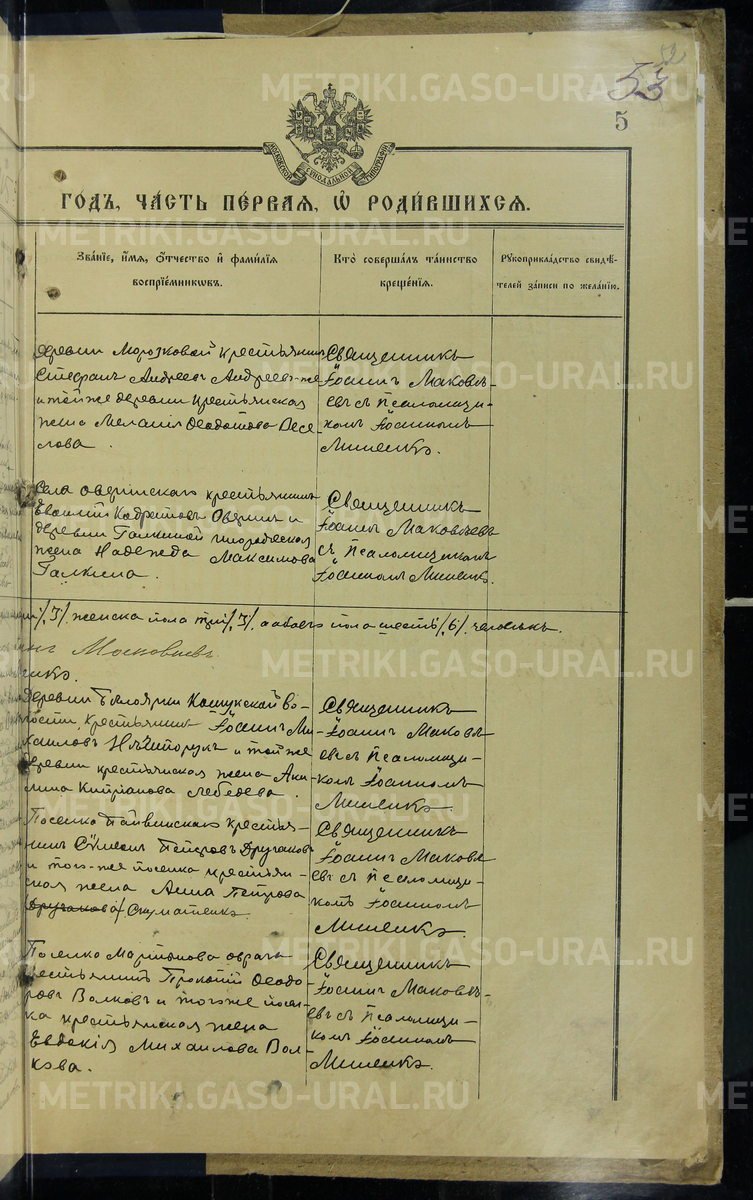 52
53
5
МОСКОВСКОЙ СѴНОДАЛЬНОЙ ТИПОГРАФІИ
ГОДЪ, ЧАСТЬ ПЕРВАЯ, Ѡ РОДИВШИХСЯ.
Званіе, имя, отчество и фамилія воспріемниковъ.
Кто совершалъ таинство крещенія.
Рукоприкладство свидѣтелей записи по желанію.
деревни Морозковой крестьянинъ
Стефанъ Андреевъ Андреевъ-же
и той же деревни крестьянская
жена Меланія Ѳеодотова Весе-
лова.
Священникъ
Іоаннъ Маковѣ-
евъ съ Псаломщи-
комъ Іоанномъ
Мишенко.
Села Оверинскаго крестьянинъ
Евсигній Кодратовъ Оверинъ и
деревни Галкиной
жена Надежда Максимова
Галкина.
Священникъ
Іоаннъ Маковѣевъ
съ Псаломщикомъ
Іоанномъ Мишенко.
/3/. женска пола три /3/. а обоего пола шесть /6/. человѣкъ.
Маковѣевъ
деревни Бѣлоярки Кошукской во-
лости, крестьянинъ Іоаннъ Ми-
хаиловъ Нѣшторукъ и той же
деревни крестьянская жена Аки-
лина Кипріанова Лебедева.
Священникъ
Іоаннъ Маковѣ-
евъ съ Псаломщи-
комъ Іоанномъ
Мишенко.
Поселка крестья-
нинъ Сѵмеонъ Петровъ Дручаковъ
и того-же поселка крестьян-
ская жена Анна Петрова
(Дручакова) Скуматенко
Священникъ
Іоаннъ Маковѣ
евъ съ Псаломщи-
комъ Іоанномъ
Мишенко.
Поселка Мартынова оврага
крестьянинъ Прокопій Ѳеодо-
ровъ Волковъ и того же посел-
ка крестьянская жена
Евдокія Михаилова Вол-
кова.
Священникъ
Іоаннъ Маковѣ-
евъ съ Псаломщи-
комъ Іоанномъ
Мишенко.
METRIKI.GASO-URAL.RU